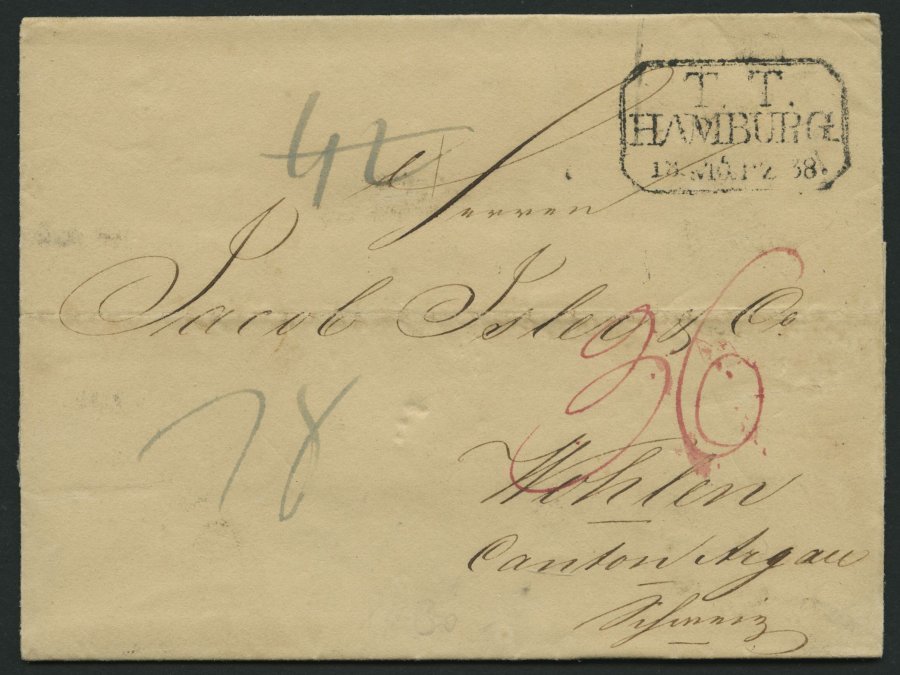 T. T.
HAMBURG
18 MÄRZ 38.
42
Herren
Jacob Isley & Co
36
78
Wohlen
Canton Argau
Schweiz